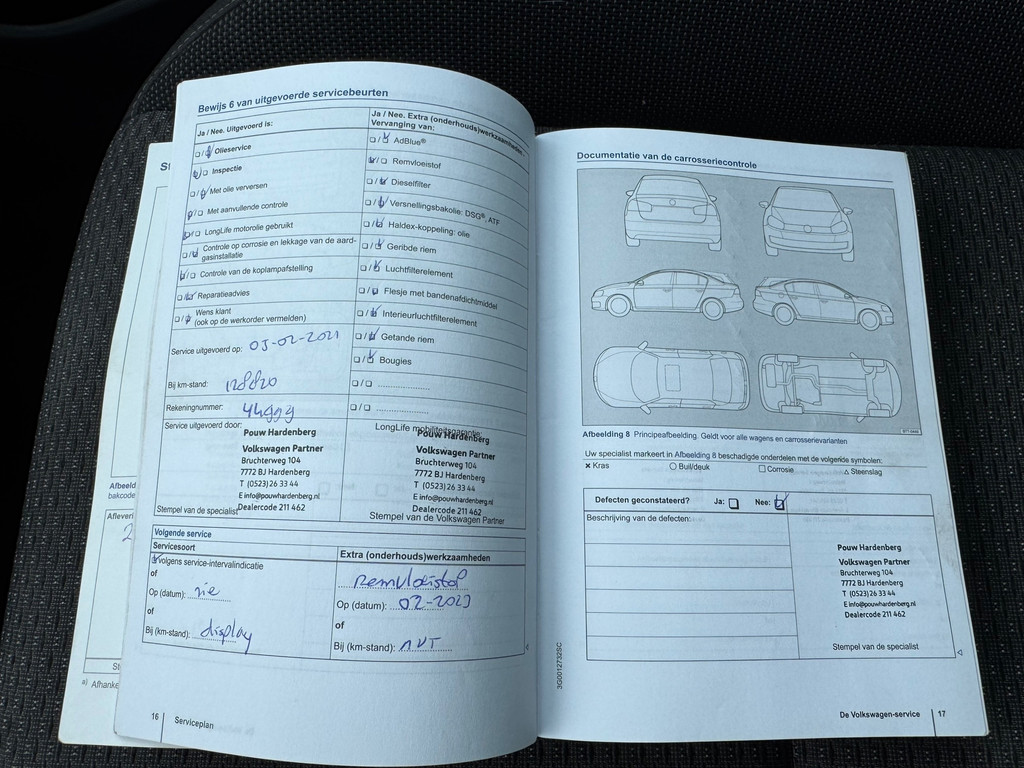 Bewijs 6 van uitgevoerde servicebeurten
Ja / Nee. Uitgevoerd is:
Olieservice
Inspectie
Met olie verversen
Met aanvullende controle
LongLife motorolie gebruikt
Controle op corrosie en lekkage van de aard-
gasinstallatie
Controle van de koplampafstelling
Reparatieadvies
Wens klant
(ook op de werkorder vermelden)
Service uitgevoerd op: 03-02-2021
Bij km-stand: 128820
Rekeningnummer: 44999
Service uitgevoerd door:
Pouw Hardenberg
Volkswagen Partner
Bruchterweg 104
7772 BJ Hardenberg
T (0523) 26 33 44
E info@pouwhardenberg.nl
Dealercode 211 462
Stempel van de specialist
Ja / Nee. Extra (onderhouds)werkzaamheden.
Vervanging van:
AdBlue®
Remvloeistof
Dieselfilter
Versnellingsbakolie: DSG®, ATF
Haldex-koppeling: olie
Geribde riem
Luchtfilterelement
Flesje met bandenafdichtmiddel
Interieurluchtfilterelement
Getande riem
Bougies
LongLife mobiliteitsgarantie:
Pouw Hardenberg
Volkswagen Partner
Bruchterweg 104
7772 BJ Hardenberg
T (0523) 26 33 44
E info@pouwhardenberg.nl
Dealercode 211 462
Stempel van de Volkswagen Partner
Volgende service
Servicesoort
volgens service-intervalindicatie
of
Op (datum): zie
of
Bij (km-stand): display
Extra (onderhouds)werkzaamheden
Remvloeistof
Op (datum): 02-2023
of
Bij (km-stand): NVT
16 | Serviceplan
Afbeeld
bakcode
Afleveri
a) Afhanke
Documentatie van de carrosseriecontrole
Afbeelding 8 Principeafbeelding. Geldt voor alle wagens en carrosserievarianten
Uw specialist markeert in Afbeelding 8 beschadigde onderdelen met de volgende symbolen:
× Kras ○ Buil/deuk □ Corrosie △ Steenslag
Defecten geconstateerd? Ja: Nee:
Beschrijving van de defecten:
Pouw Hardenberg
Volkswagen Partner
Bruchterweg 104
7772 BJ Hardenberg
T (0523) 26 33 44
E info@pouwhardenberg.nl
Dealercode 211 462
Stempel van de specialist
3G0012732SC
De Volkswagen-service | 17